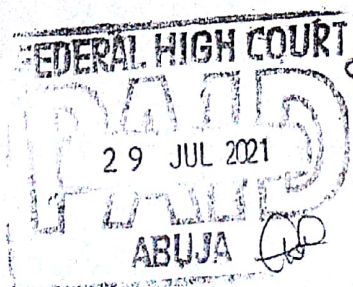 FEDERAL HIGH COURT
PAID
29 JUL 2021
ABUJA